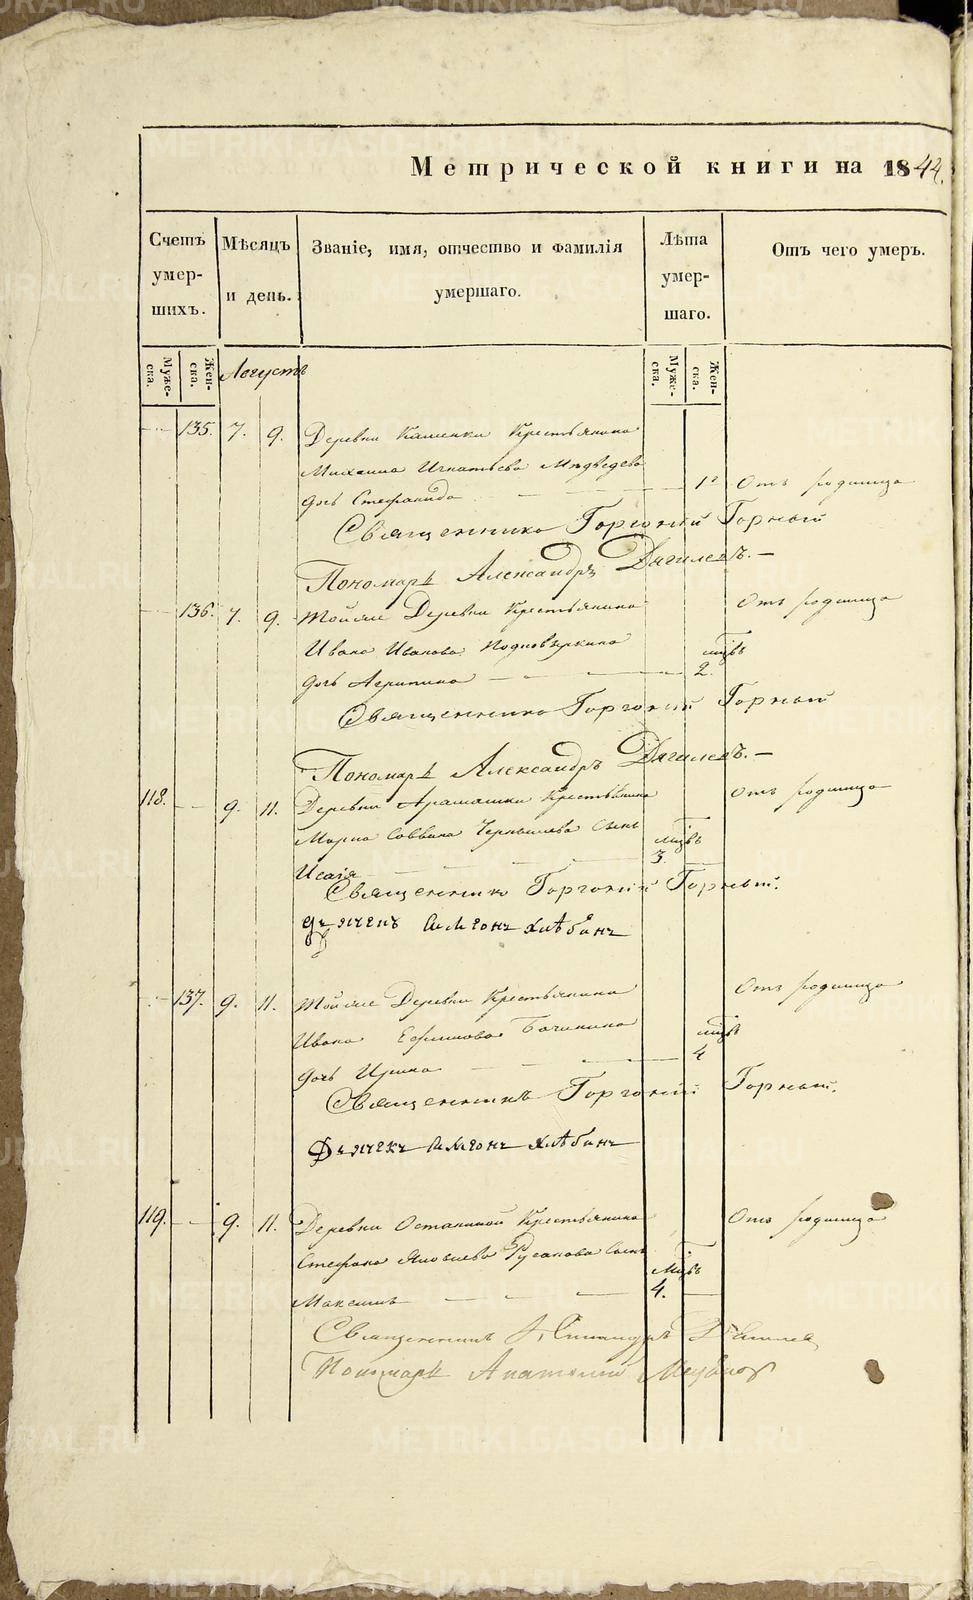 Метрической книги на 1844.
Счетъ умер-шихъ.
Мѣсяцъ и день.
Званіе, имя, отчество и фамилія умершаго.
Лѣта умер-шаго.
Отъ чего умеръ.
Муже-ска.
Жен-ска.
Августъ
Муже-ска.
Жен-ска.
135. 7. 9. Деревни Каменки Крестьянина
Михаила Игнатьева Медведева
дочь Стефанида 1 Отъ родимца
Священникъ Горгоній Горный
Пономарь Александръ Дягилевъ.
136. 7. 9. Тойже Деревни Крестьянина Отъ родимца
Ивана Иванова
дочь Агрипина 2.
Священникъ Горгоній Горный
Пономарь Александръ Дягилевъ.
118. 9. 11. Деревни Арамашки Крестьянина Отъ родимца
Марка Саввина Чернышева сынъ
Исаія 3.
Священникъ Горгоній Горный.
дьячекъ Симеонъ Хлѣбинъ
137. 9. 11. Тойже Деревни Крестьянина Отъ родимца
Ивана Ефимова Бачинина
дочь Ирина 4
Священникъ Горгоній Горный.
Дьячекъ Симеонъ Хлѣбинъ
119. 9. 11. Деревни Останиной Крестьянина Отъ родимца
Стефана Яковлева Русакова сынъ
Максимъ 4.
Священникъ
Пономарь Анатолій
METRIKI.GASO-URAL.RU